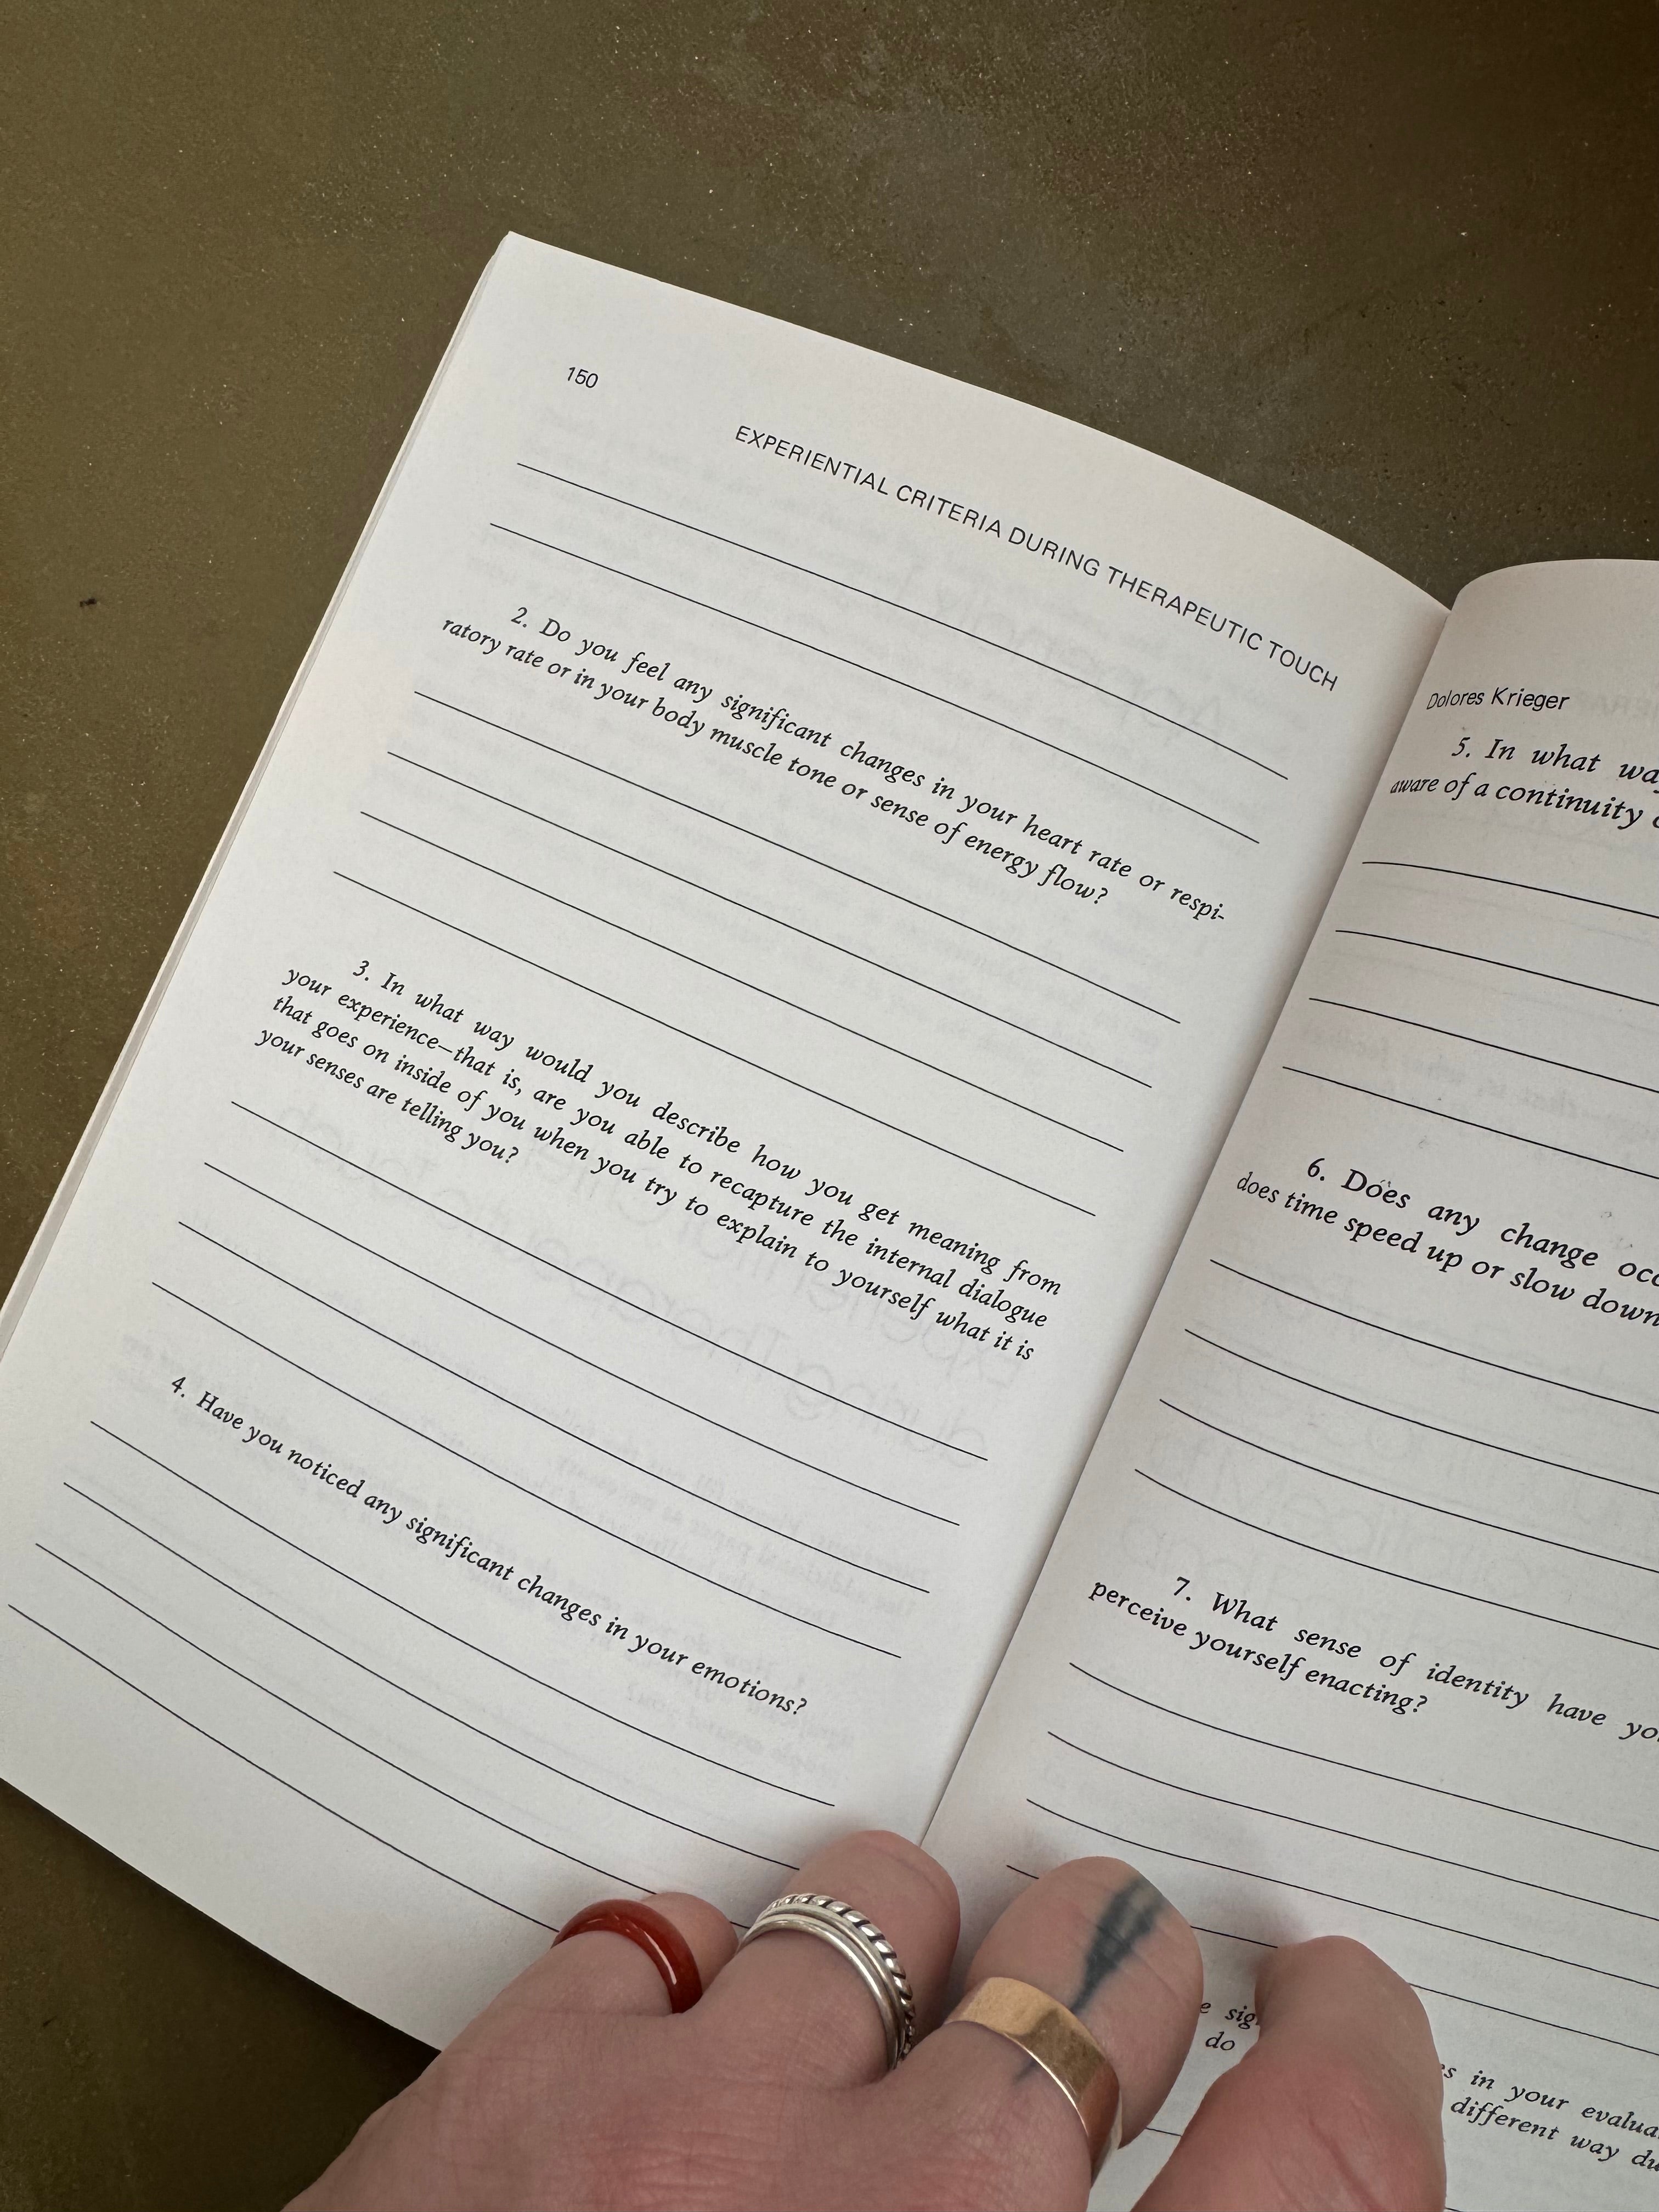 150
EXPERIENTIAL CRITERIA DURING THERAPEUTIC TOUCH
2. Do you feel any significant changes in your heart rate or respi-
ratory rate or in your body muscle tone or sense of energy flow?
3. In what way would you describe how you get meaning from
your experience—that is, are you able to recapture the internal dialogue
that goes on inside of you when you try to explain to yourself what it is
your senses are telling you?
4. Have you noticed any significant changes in your emotions?
Dolores Krieger
5. In what
aware of a continuity
6. Does any change
does time speed up or slow down
7. What sense of identity have
perceive yourself enacting?
do
in your
different way